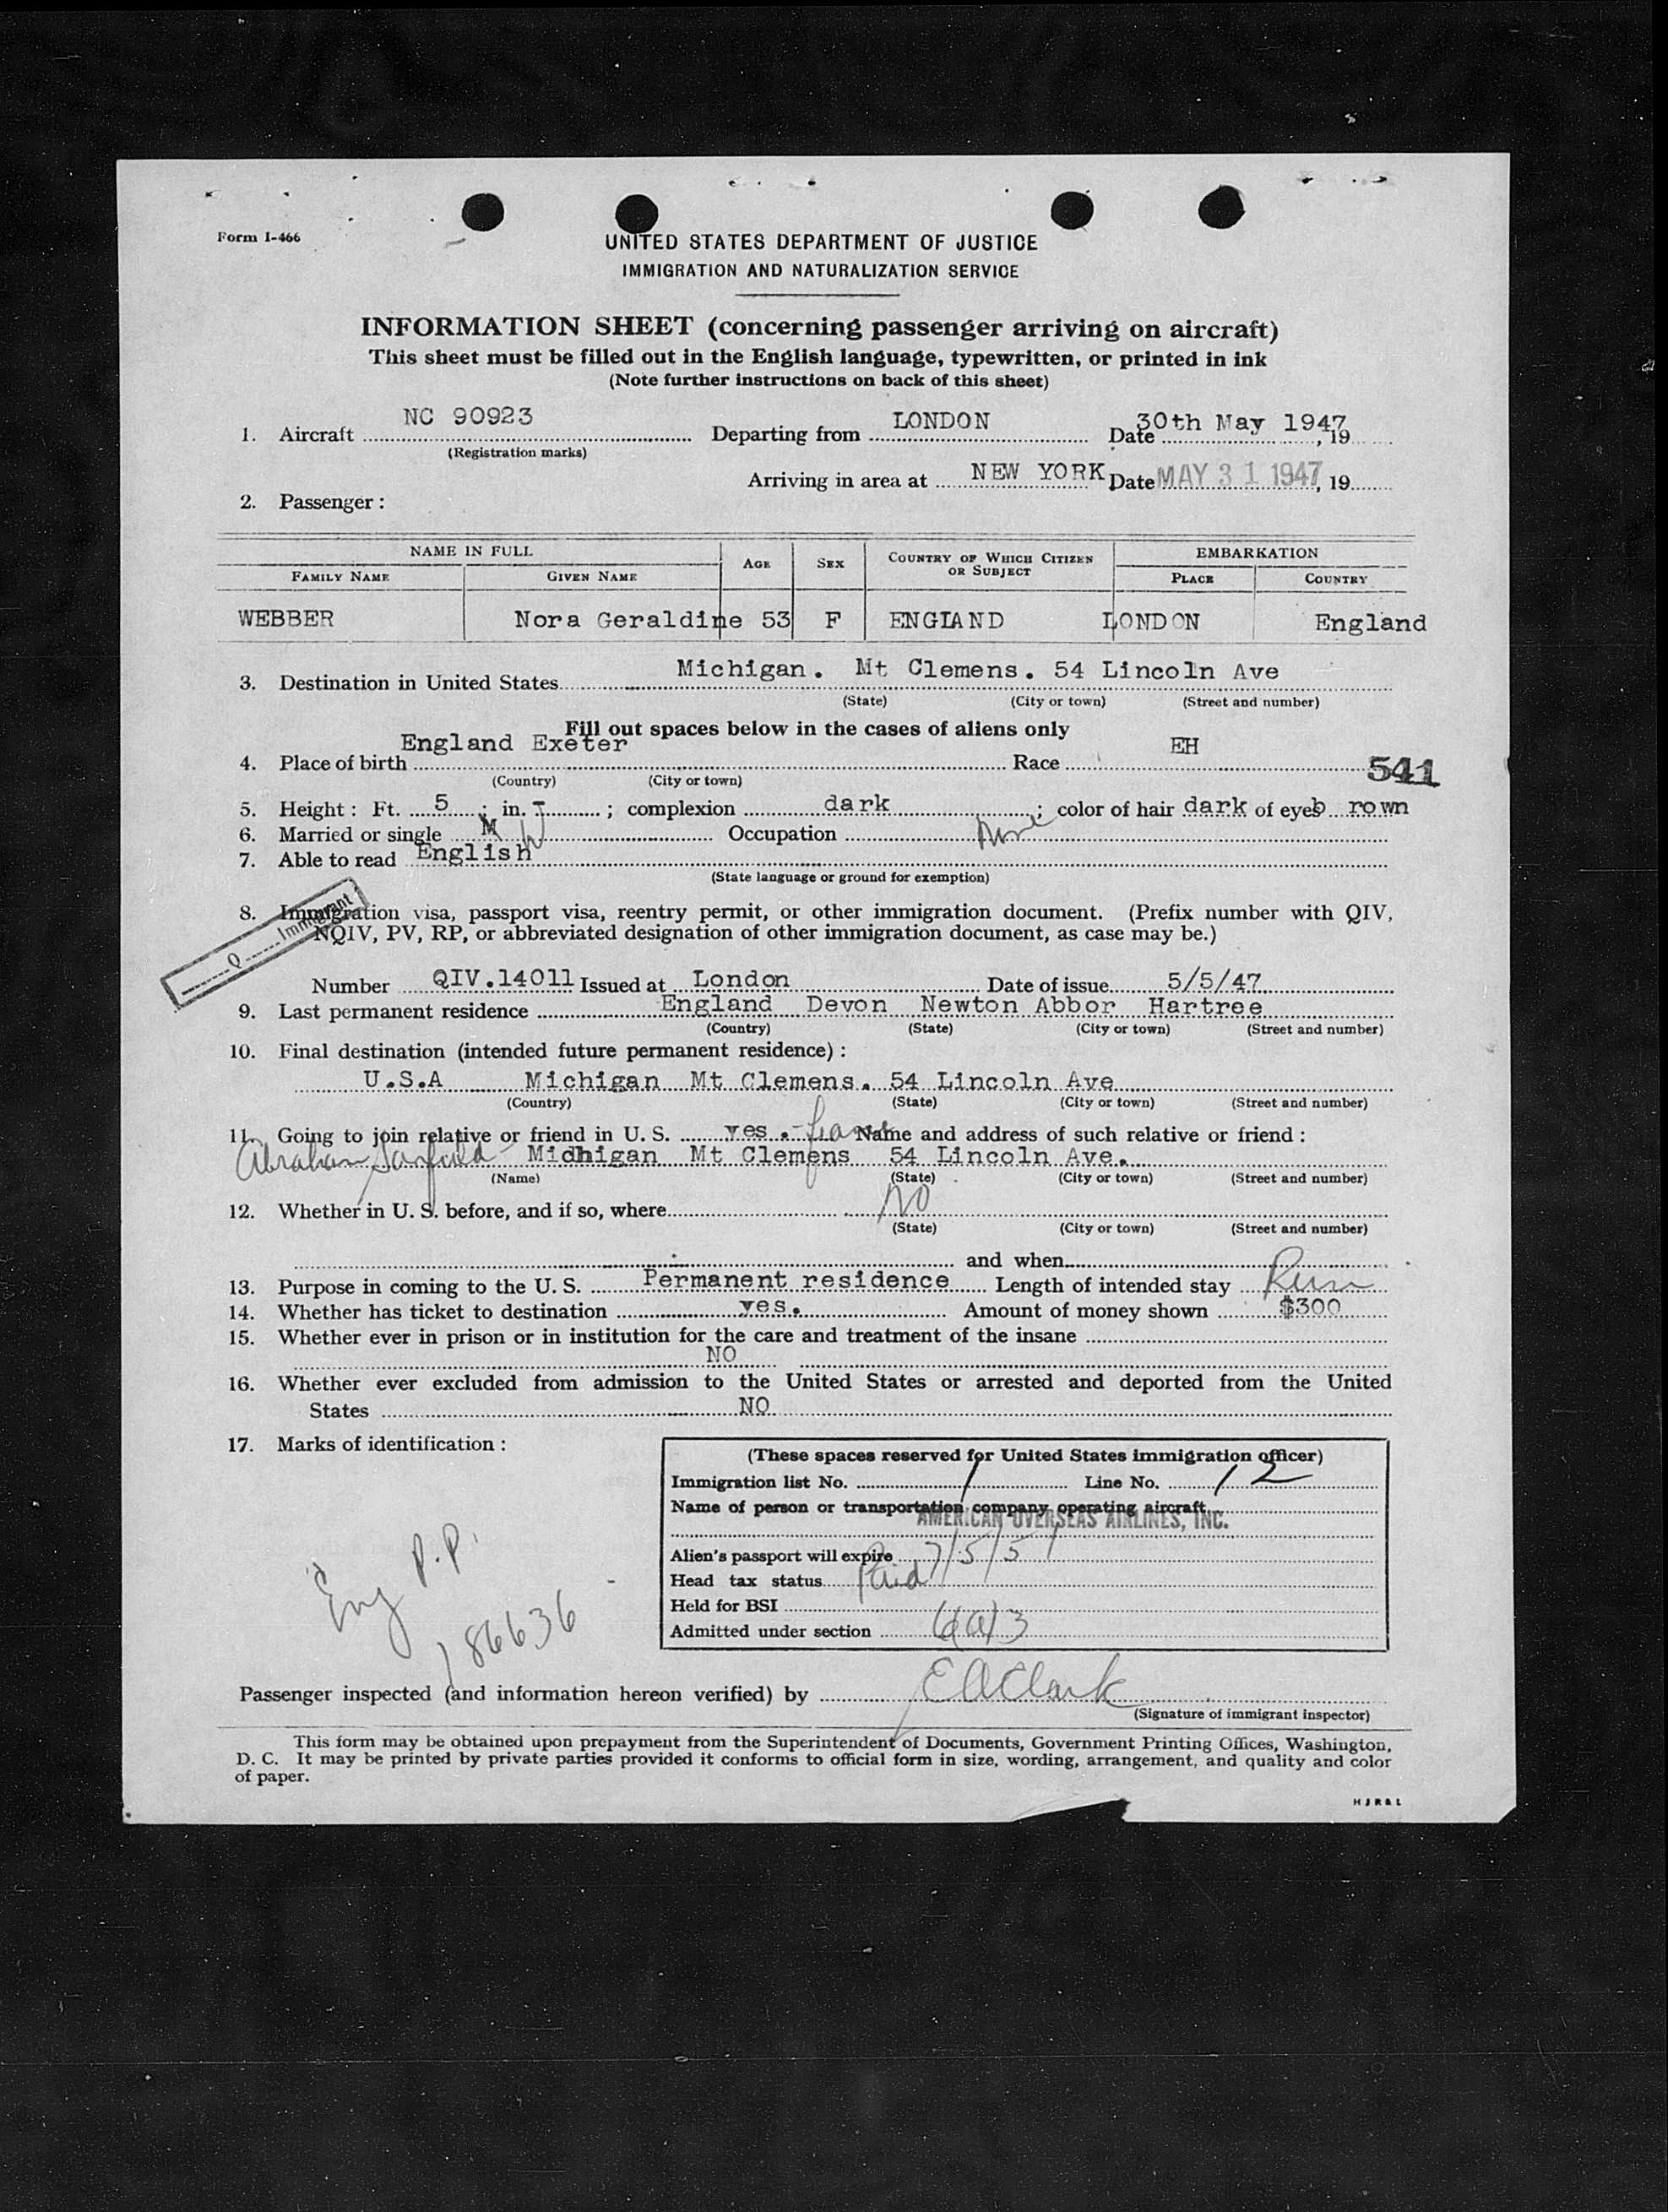 Form I-466
UNITED STATES DEPARTMENT OF JUSTICE
IMMIGRATION AND NATURALIZATION SERVICE
INFORMATION SHEET (concerning passenger arriving on aircraft)
This sheet must be filled out in the English language, typewritten, or printed in ink
(Note further instructions on back of this sheet)
1. Aircraft NC 90923 Departing from LONDON Date 30th May 1947, 19
(Registration marks)
Arriving in area at NEW YORK Date MAY 31 1947, 19
2. Passenger:
NAME IN FULL AGE SEX COUNTRY OF WHICH CITIZEN OR SUBJECT EMBARKATION
FAMILY NAME GIVEN NAME PLACE COUNTRY
WEBBER Nora Geraldine 53 F ENGIAND LONDON England
3. Destination in United States Michigan. Mt Clemens. 54 Lincoln Ave
(State) (City or town) (Street and number)
Fill out spaces below in the cases of aliens only
4. Place of birth England Exeter Race EH
(Country) (City or town)
541
5. Height: Ft. 5; in.; complexion dark; color of hair dark of eyes b rown
6. Married or single M W Occupation
7. Able to read English
(State language or ground for exemption)
Q Immigrant
8. Immigration visa, passport visa, reentry permit, or other immigration document. (Prefix number with QIV,
NQIV, PV, RP, or abbreviated designation of other immigration document, as case may be.)
Number QIV.14011 Issued at London Date of issue 5/5/47
9. Last permanent residence England Devon Newton Abbor Hartree
(Country) (State) (City or town) (Street and number)
10. Final destination (intended future permanent residence):
U.S.A Michigan Mt Clemens. 54 Lincoln Ave
(Country) (State) (City or town) (Street and number)
11. Going to join relative or friend in U. S. yes.- Name and address of such relative or friend:
Abraham Midhigan Mt Clemens 54 Lincoln Ave.
(Name) (State) (City or town) (Street and number)
12. Whether in U. S. before, and if so, where NO
(State) (City or town) (Street and number)
and when
13. Purpose in coming to the U. S. Permanent residence Length of intended stay
14. Whether has ticket to destination yes. Amount of money shown $300
15. Whether ever in prison or in institution for the care and treatment of the insane
NO
16. Whether ever excluded from admission to the United States or arrested and deported from the United
States NO
17. Marks of identification:
(These spaces reserved for United States immigration officer)
Immigration list No. 1 Line No. 12
Name of person or transportation company operating aircraft
AMERICAN OVERSEAS AIRLINES, INC.
Alien's passport will expire 7/5/51
Head tax status Paid
Held for BSI
Admitted under section 6(a)3
Eng P.P.
186636
Passenger inspected (and information hereon verified) by E A Clark
(Signature of immigrant inspector)
This form may be obtained upon prepayment from the Superintendent of Documents, Government Printing Offices, Washington,
D. C. It may be printed by private parties provided it conforms to official form in size, wording, arrangement, and quality and color
of paper.
HJR&L